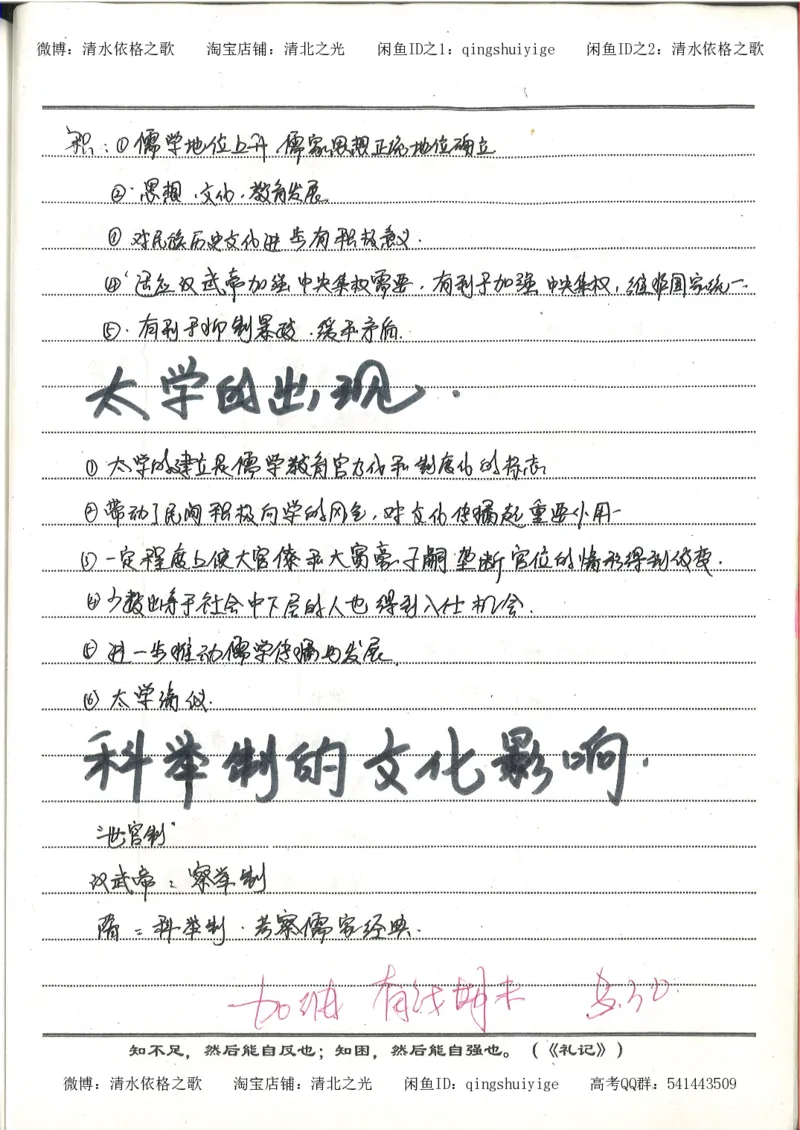 微博：清水依格之歌　　淘宝店铺：清北之光　　闲鱼ID之1：qingshuiyige　　闲鱼ID之2：清水依格之歌
积：①儒学地位上升，儒家思想正统地位确立
②思想、文化、教育发展
③对民族历史文化进步有积极意义.
④适应汉武帝加强中央集权需要，有利于加强中央集权，维护国家统一.
⑤.有利于抑制暴政.缓和矛盾.
太学的出现.
①太学的建立是儒学教育官方化和制度化的标志
②带动了民间积极向学的风气，对文化传播起重要作用
③一定程度上使大官僚和大富豪子嗣垄断官位的情形得到改变.
④少数出身于社会中下层的人也得到入仕机会.
⑤进一步推动儒学传播与发展.
⑥太学清议.
科举制的文化影响.
世官制
汉武帝：察举制
隋：科举制.考察儒家经典.
加油 期末
知不足，然后能自反也；知困，然后能自强也。（《礼记》）
微博：清水依格之歌　　淘宝店铺：清北之光　　闲鱼ID：qingshuiyige　　高考QQ群：541443509